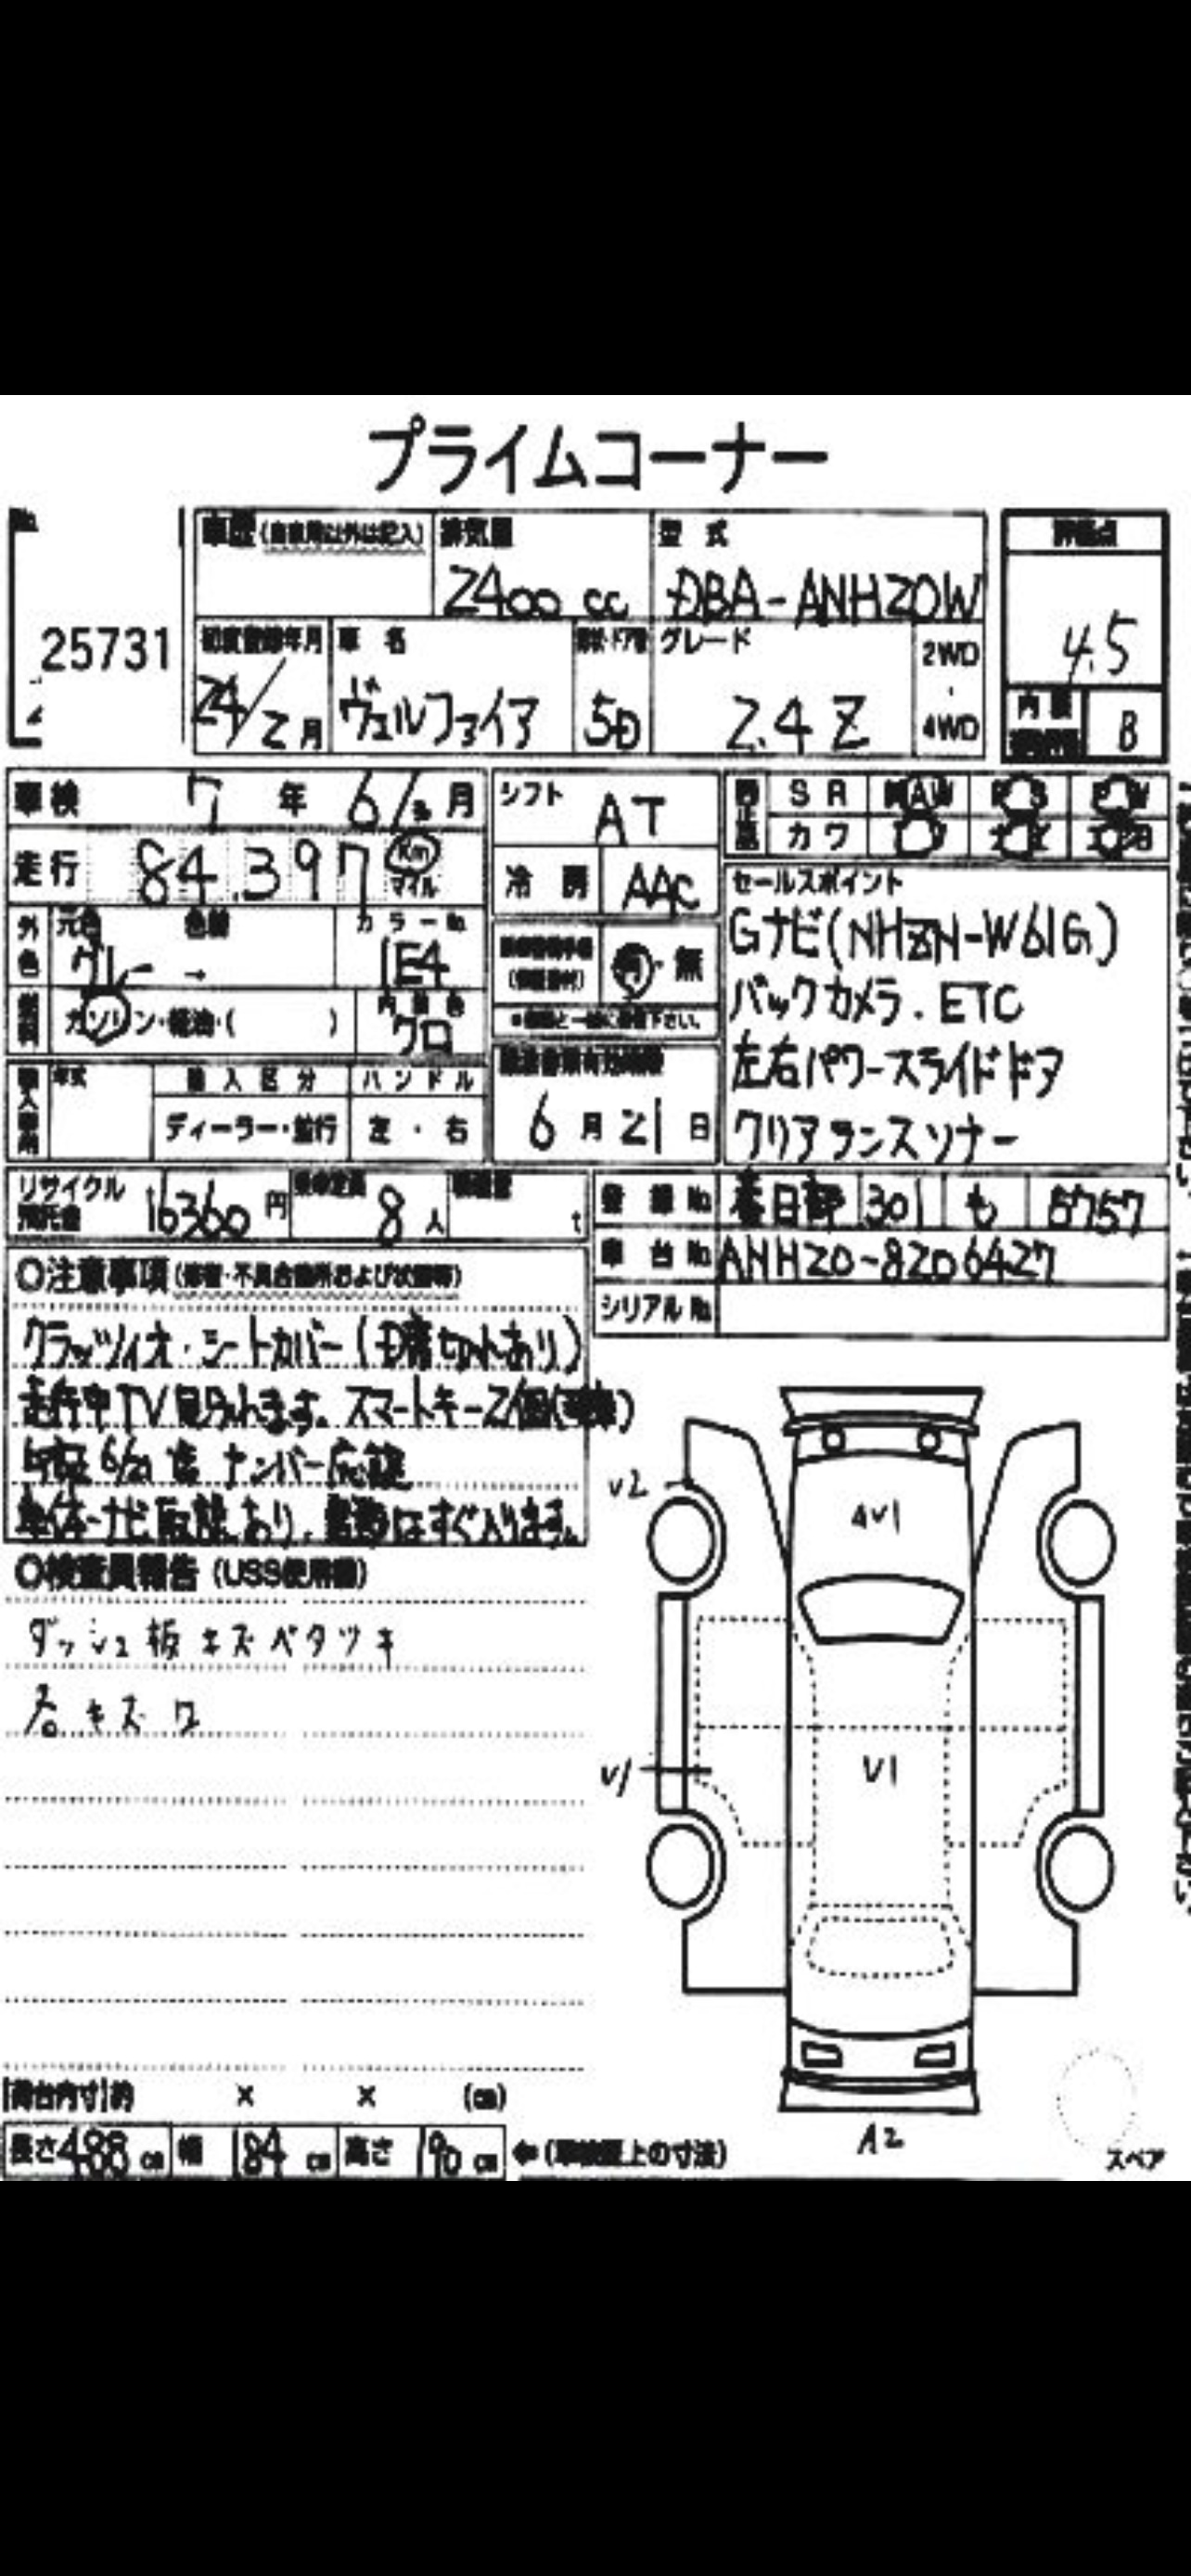 プライムコーナー
No.
25731
車歴 (自家用以外は記入)
排気量
2400 cc
型式
DBA-ANH20W
評価点
4.5
初度登録年月
24/2月
車名
ヴェルファイア
形状・ドア数
5D
グレード
2.4 Z
2WD
・
4WD
内装
B
車検 7年 6/ 月
走行 84,397 Km
マイル
シフト AT
冷房 AAC
SR AW PS PW
カワ
外色 元色 グレー → 色替
カラーNo. 1E4
燃料 ガソリン・軽油・( )
内装色 クロ
(保証書付) 有・無
セールスポイント
Gナビ(NHZN-W61G)
バックカメラ.ETC
左右パワースライドドア
クリアランスソナー
年式
輸入区分
ディーラー・並行
ハンドル
左・右
6月21日
リサイクル預託金 16360円
乗車定員 8人
積載量 t
登録No. 春日部 301 も 5757
車台No. ANH20-8206427
シリアルNo.
○注意事項 (修復・不具合箇所および状態等)
クラッツィオ・シートカバー(
走行中TV見られます。スマートキー2個(
6/21 迄 ナンバー応談
ナビ取説あり、書類はすぐ入ります。
○検査員報告 (USS使用欄)
ダッシュ板キズベタツキ
右キズワ
V2
4V1
V1
V1
A2
スペア
[荷台内寸]約 × × (cm)
長さ 488 cm 幅 184 cm 高さ 190 cm ←(車検証上の寸法)